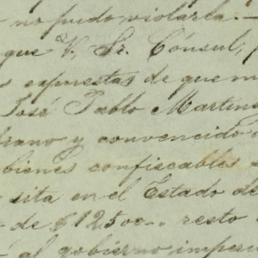 no pudo violarla. —
que V. Sr. Cónsul,
expuestas de que
José Pablo Martin
y convencido
bienes confiscables
sita en el Estado de
de $12500.. resto
al gobierno